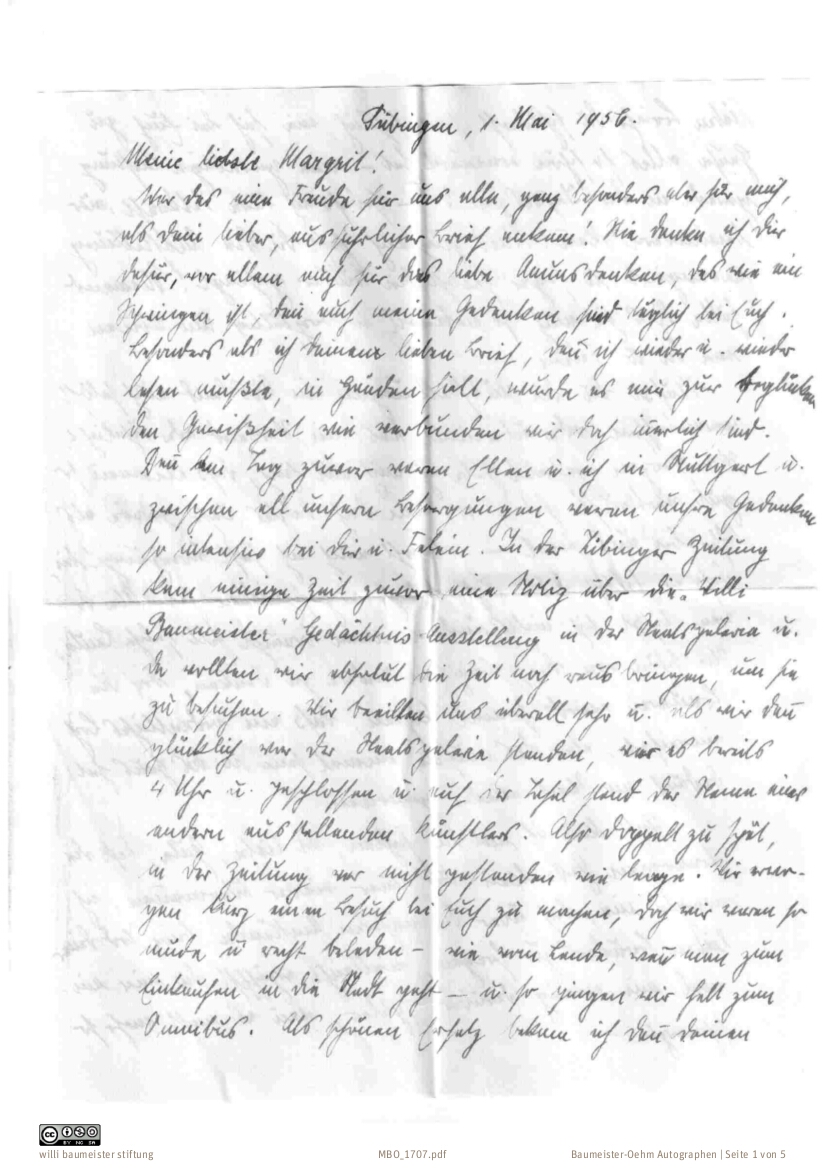 Tübingen, 1. Mai 1956.
Meine liebste Margrit!
War das eine Freude für uns alle, ganz besonders aber für mich,
als dein lieber, ausführlicher Brief ankam! Wie danke ich dir
dafür, vor allem auch für das liebe Anunsdenken, das wie ein
Schwingen ist, denn auch meine Gedanken sind täglich bei Euch.
Besonders als ich deinen lieben Brief, den ich wieder u. wieder
lesen mußte, in Händen hielt, wurde es mir zur beglücken
den Gewißheit wie verbunden wir doch innerlich sind.
Denn am Tag zuvor waren Ellen u. ich in Stuttgart u.
zwischen all unsern Besorgungen waren unsre Gedanken
so intensiv bei dir u. In der Tübinger Zeitung
kam einige Zeit zuvor eine Notiz über die "Willi
Baumeister" Gedächtnis-Ausstellung in der Staatsgalerie u.
da wollten wir absolut die Zeit noch rausbringen, um sie
zu besuchen. Wir beeilten uns überall sehr u. als wir dann
glücklich vor der Staatsgalerie standen, war es bereits
4 Uhr u. geschlossen u. auf der Tafel stand der Name eines
andern ausstellenden Künstlers. Also doppelt zu spät,
in der Zeitung war nicht gestanden wie lange. Wir erwo-
gen kurz einen Besuch bei Euch zu machen, doch wir waren so
müde u recht beladen – wie vom Lande, wenn man zum
Einkaufen in die Stadt geht – u. so gingen wir halt zum
Omnibus. Als schönen Ersatz bekam ich dann deinen
CC BY NC SA
willi baumeister stiftung
MBO_1707.pdf
Baumeister-Oehm Autographen | Seite 1 von 5